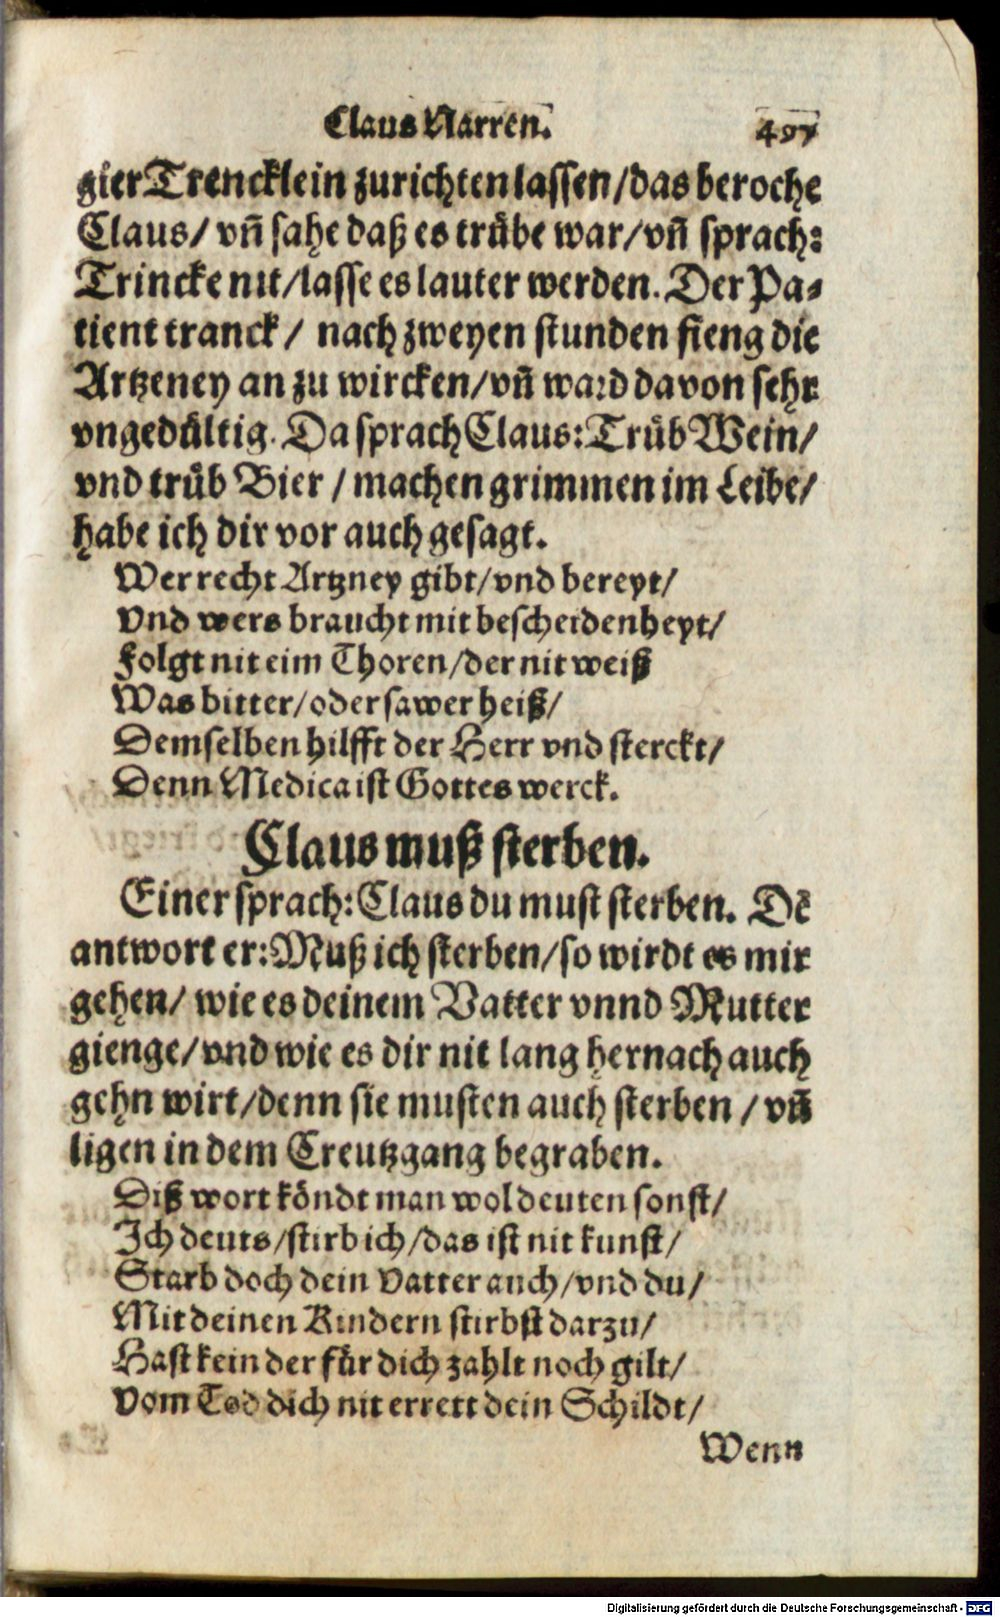 Claus Narren. 497
gier Trencklein zurichten lassen/das beroche
Claus/ vñ sahe daß es trůbe war/vñ sprach:
Trincke nit/lasse es lauter werden. Der Pa-
tient tranck/ nach zweyen stunden fieng die
Artzeney an zu wircken/vñ ward davon sehr
vngedůltig. Da sprach Claus: Trůb Wein/
vnd trůb Bier / machen grimmen im Leibe/
habe ich dir vor auch gesagt.
Wer recht Artzney gibt/vnd bereyt/
Vnd wers braucht mit bescheidenheyt/
Folgt nit eim Thoren/der nit weiß
Was bitter/oder sawer heiß/
Demselben hilfft der Herr vnd sterckt/
Denn Medica ist Gottes werck.
Claus muß sterben.
Einer sprach: Claus du must sterben. Dē
antwort er: Muß ich sterben/so wirdt es mir
gehen/ wie es deinem Vatter vnnd Mutter
gienge/vnd wie es dir nit lang hernach auch
gehn wirt/denn sie musten auch sterben / vñ
ligen in dem Creutzgang begraben.
Diß wort kőndt man wol deuten sonst/
Ich deuts/stirb ich/das ist nit kunst/
Starb doch dein Vatter auch/vnd du/
Mit deinen Kindern stirbst darzu/
Hast kein der fůr dich zahlt noch gilt/
Vom Tod dich nit errett dein Schildt/
Wenn
Digitalisierung gefördert durch die Deutsche Forschungsgemeinschaft - DFG